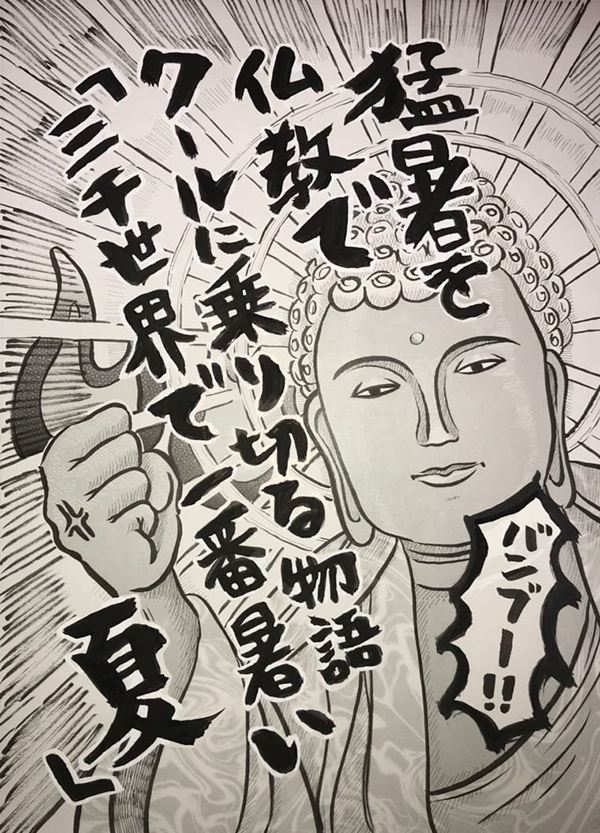 猛暑を
仏教で
クールに乗り切る物語
「三千世界で一番暑い
夏」
バンブー!!